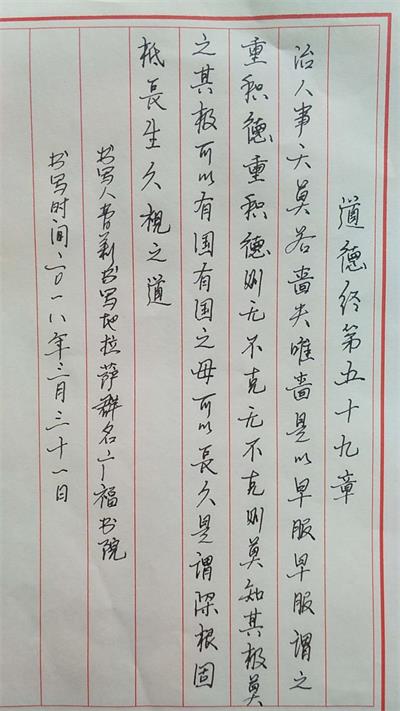 道德经第五十九章
治人事天莫若啬夫唯啬是以早服早服谓之
重积德重积德则无不克无不克则莫知其极莫
之其极可以有国有国之母可以長久是谓深根固
柢長生久視之道
书写人曹莉书写地拉萨群名广福书院
书写时间二〇一八年三月三十一日